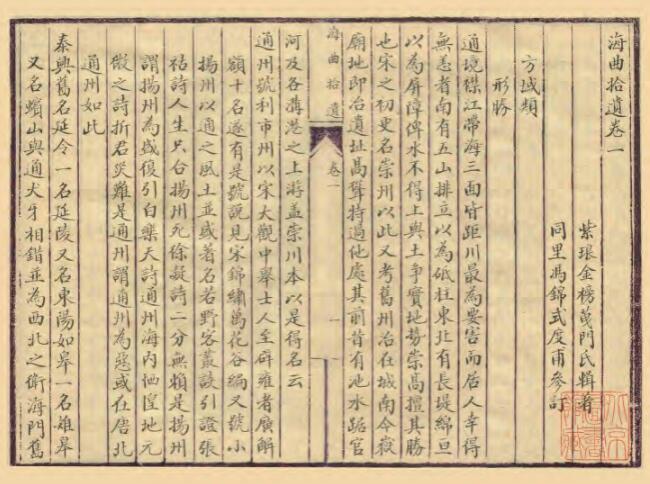 海曲拾遺卷一
紫琅金榜蔑門氏輯著
同里馮錦式度甫參訂
方域類
形勝
通境襟江帶海三面皆距川最為要害而居人幸得
無恙者南有五山排立以為砥柱東北有長堤綿亘
以為屏障俾水不得上與土爭實地勢崇高擅其勝
也宋之初更名崇州以此又考舊州治在城南今嶽
廟地即治遺址高聳特過他處其前昔有池水踞官
海曲拾遺
卷一
一
河及各溝港之上游蓋崇川本以是得名云
通州號利市州以宋大觀中舉士人至辟雍者廣解
額十名遂有是號說見宋錦繡萬花谷編又號小
揚州以通之風土並或著名若野客叢談引證張
祜詩人生只合揚州死徐凝詩二分無賴是揚州
謂揚州為盛復引白樂天詩通州海內恓惶地元
微之詩折君災難是通州謂通州為惡或在唐北
通州如此
泰興舊名延令一名延陵又名東陽如皋一名雉皋
又名蠙山與通犬牙相錯並為西北之衛海門舊